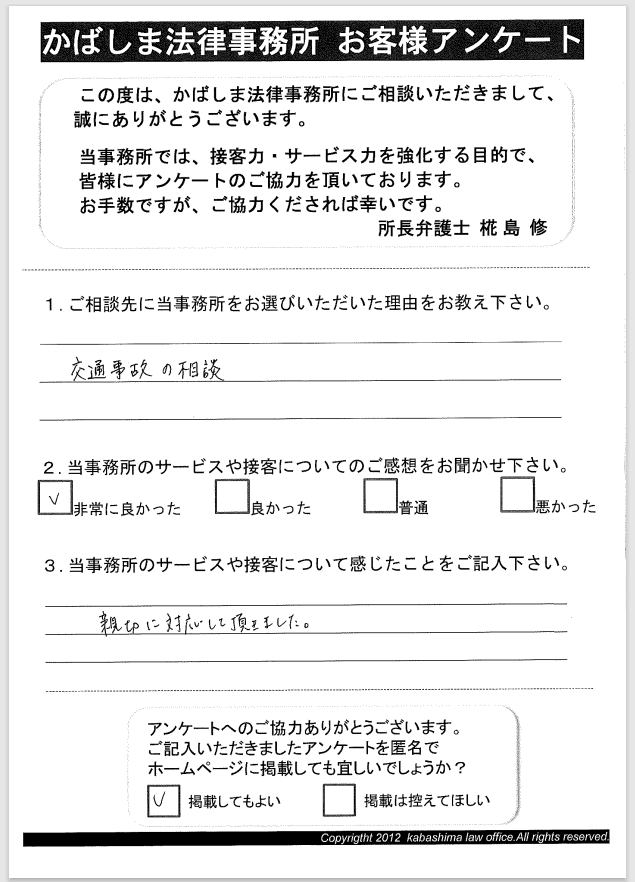 かばしま法律事務所 お客様アンケート
この度は、かばしま法律事務所にご相談いただきまして、
誠にありがとうございます。
当事務所では、接客力・サービス力を強化する目的で、
皆様にアンケートのご協力を頂いております。
お手数ですが、ご協力くだされば幸いです。
所長弁護士 椛島 修
1.ご相談先に当事務所をお選びいただいた理由をお教え下さい。
交通事故の相談
2.当事務所のサービスや接客についてのご感想をお聞かせ下さい。
非常に良かった 良かった 普通 悪かった
3.当事務所のサービスや接客について感じたことをご記入下さい。
親切に対応して頂きました。
アンケートへのご協力ありがとうございます。
ご記入いただきましたアンケートを匿名で
ホームページに掲載しても宜しいでしょうか?
掲載してもよい 掲載は控えてほしい
Copyrigtht 2012 kabashima law office.All rights reserved.